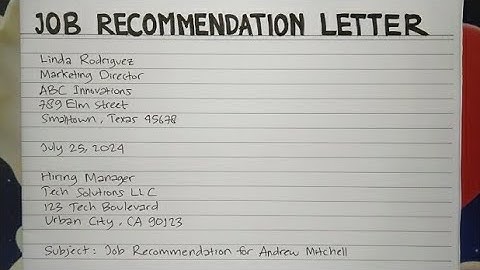 JOB RECOMMENDATION LETTER
Linda Rodriguez
Marketing Director
ABC Innovations
789 Elm Street
Smalltown, Texas 45678
July 25, 2024
Hiring Manager
Tech Solutions LLC
123 Tech Boulevard
Urban City, CA 90123
Subject: Job Recommendation for Andrew Mitchell